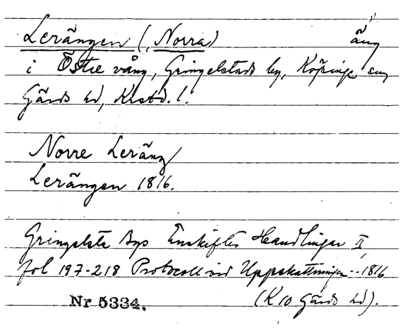 Lerängen (, Norra) äng
i Östre vång, Gringelstads by, Köpinge sn
Gärds hd, Kristd. l.
Norre Leräng
Lerängen 1816.
Gringelsta Bys Enskiftes Handlingar II,
fol 197-218 Protocoll vid Uppskattningen -- 1816
Nr 5334. (K 10 Gärds hd).